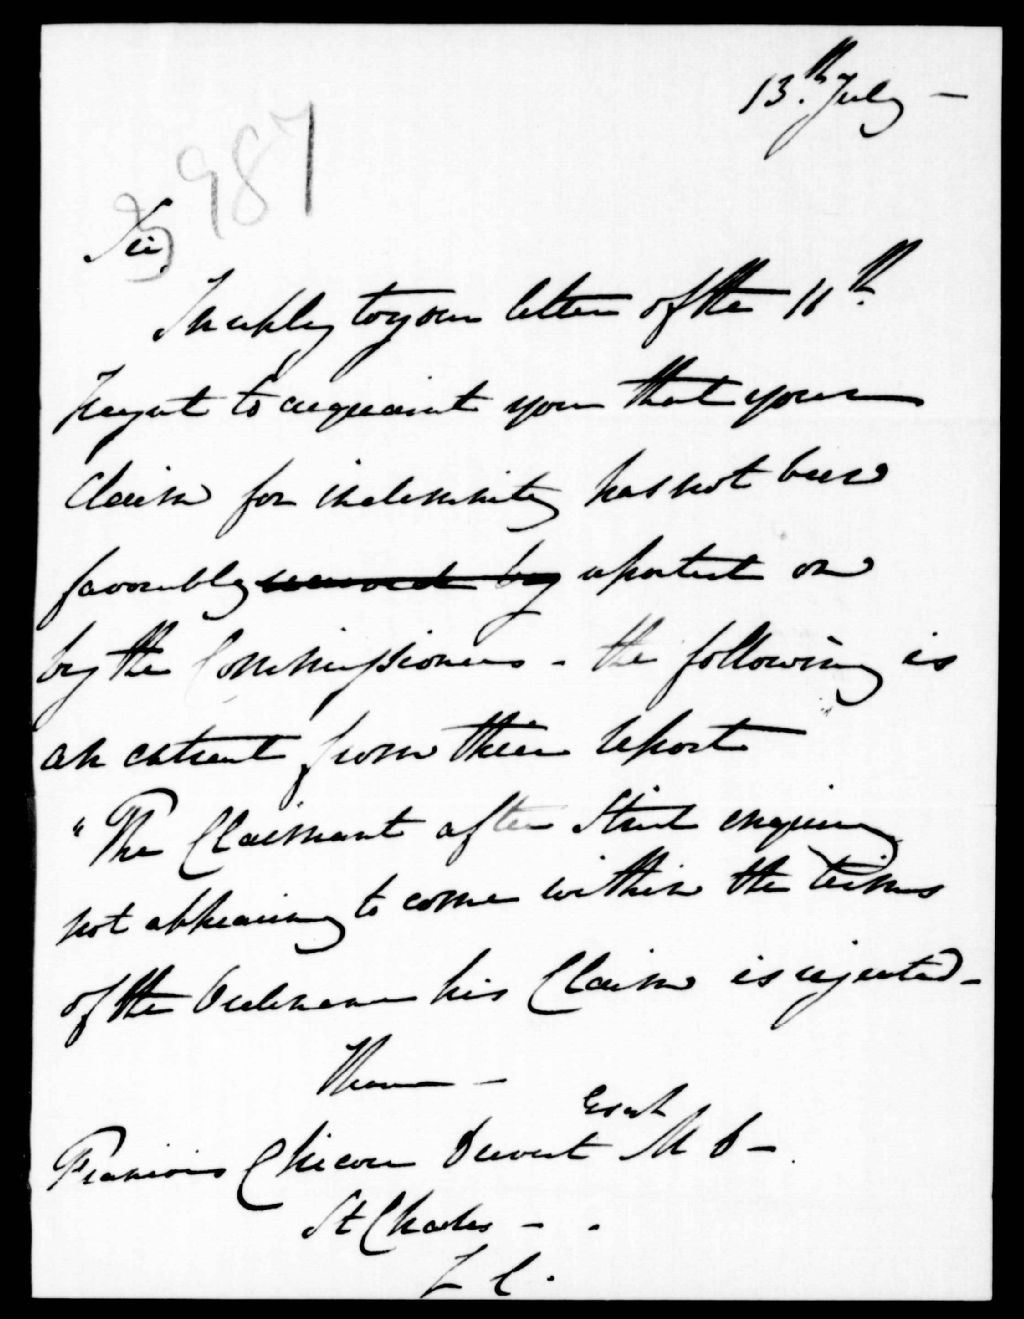 13th July —
987
Sir,
In reply to your letter of the 11th
I regret to acquaint you that your
Claim for indemnity has not been
favorably received by reported on
by the Commissioners - the following is
an extract from their report
"The Claimant after strict enquiry
not appearing to come within the terms
of the Ordinance his Claim is rejected -
I have —
Esqr
Francois Chicou Duvert M D -
St Charles - -
L C.